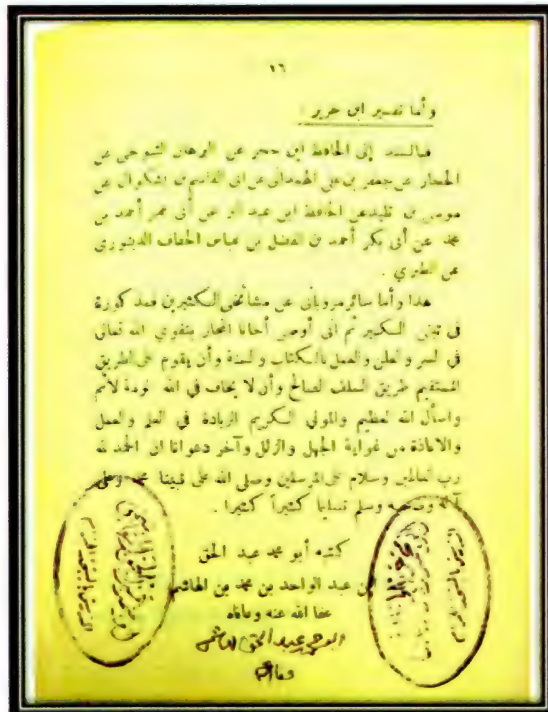 ١٦
وأما تفسير ابن جرير :
فبالسند إلى الحافظ ابن حجر عن البرهان التنوخي عن
الحجار عن جعفر بن علي الهمداني عن ابن القاسم بن بشكوال عن
موسى بن تليد عن الحافظ ابن عبد البر عن أبي عمر أحمد بن
محمد عن أبي بكر أحمد بن الفضل بن عباس الخفاف الدينوري
عن الطبري .
هذا وأما سائر مروياتي عن مشائخي المكثيرين فمذكورة
في ثبتي الكبير ثم اني أوصي أخانا المجاز بتقوى الله تعالى
في السر والعلن والعمل بالكتاب والسنة وأن يقوم على الطريق
المستقيم طريق السلف الصالح وأن لا يخاف في الله لومة لائم
واسأل الله العظيم والمولي الكريم الزيادة في العلم والعمل
والاعاذة من غواية الجهل والزلل وآخر دعوانا ان الحمد لله
رب العالمين وسلام على المرسلين وصلى الله على نبينا محمد وعلى
آله وصحبه وسلم تسليما كثيراً كثيرا .
كتبه أبو محمد عبد الحق
بن عبد الواحد بن محمد بن الهاشمي
عفا الله عنه وعافاه
ابو محمد عبد الحق الهاشمي